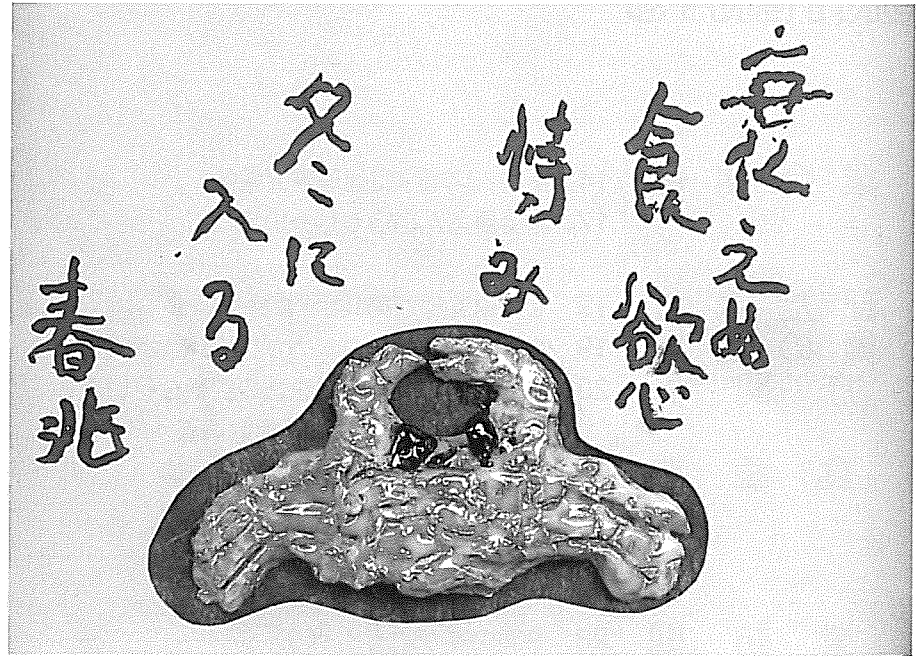 衰えぬ
食慾
恃み
冬に
入る
春兆